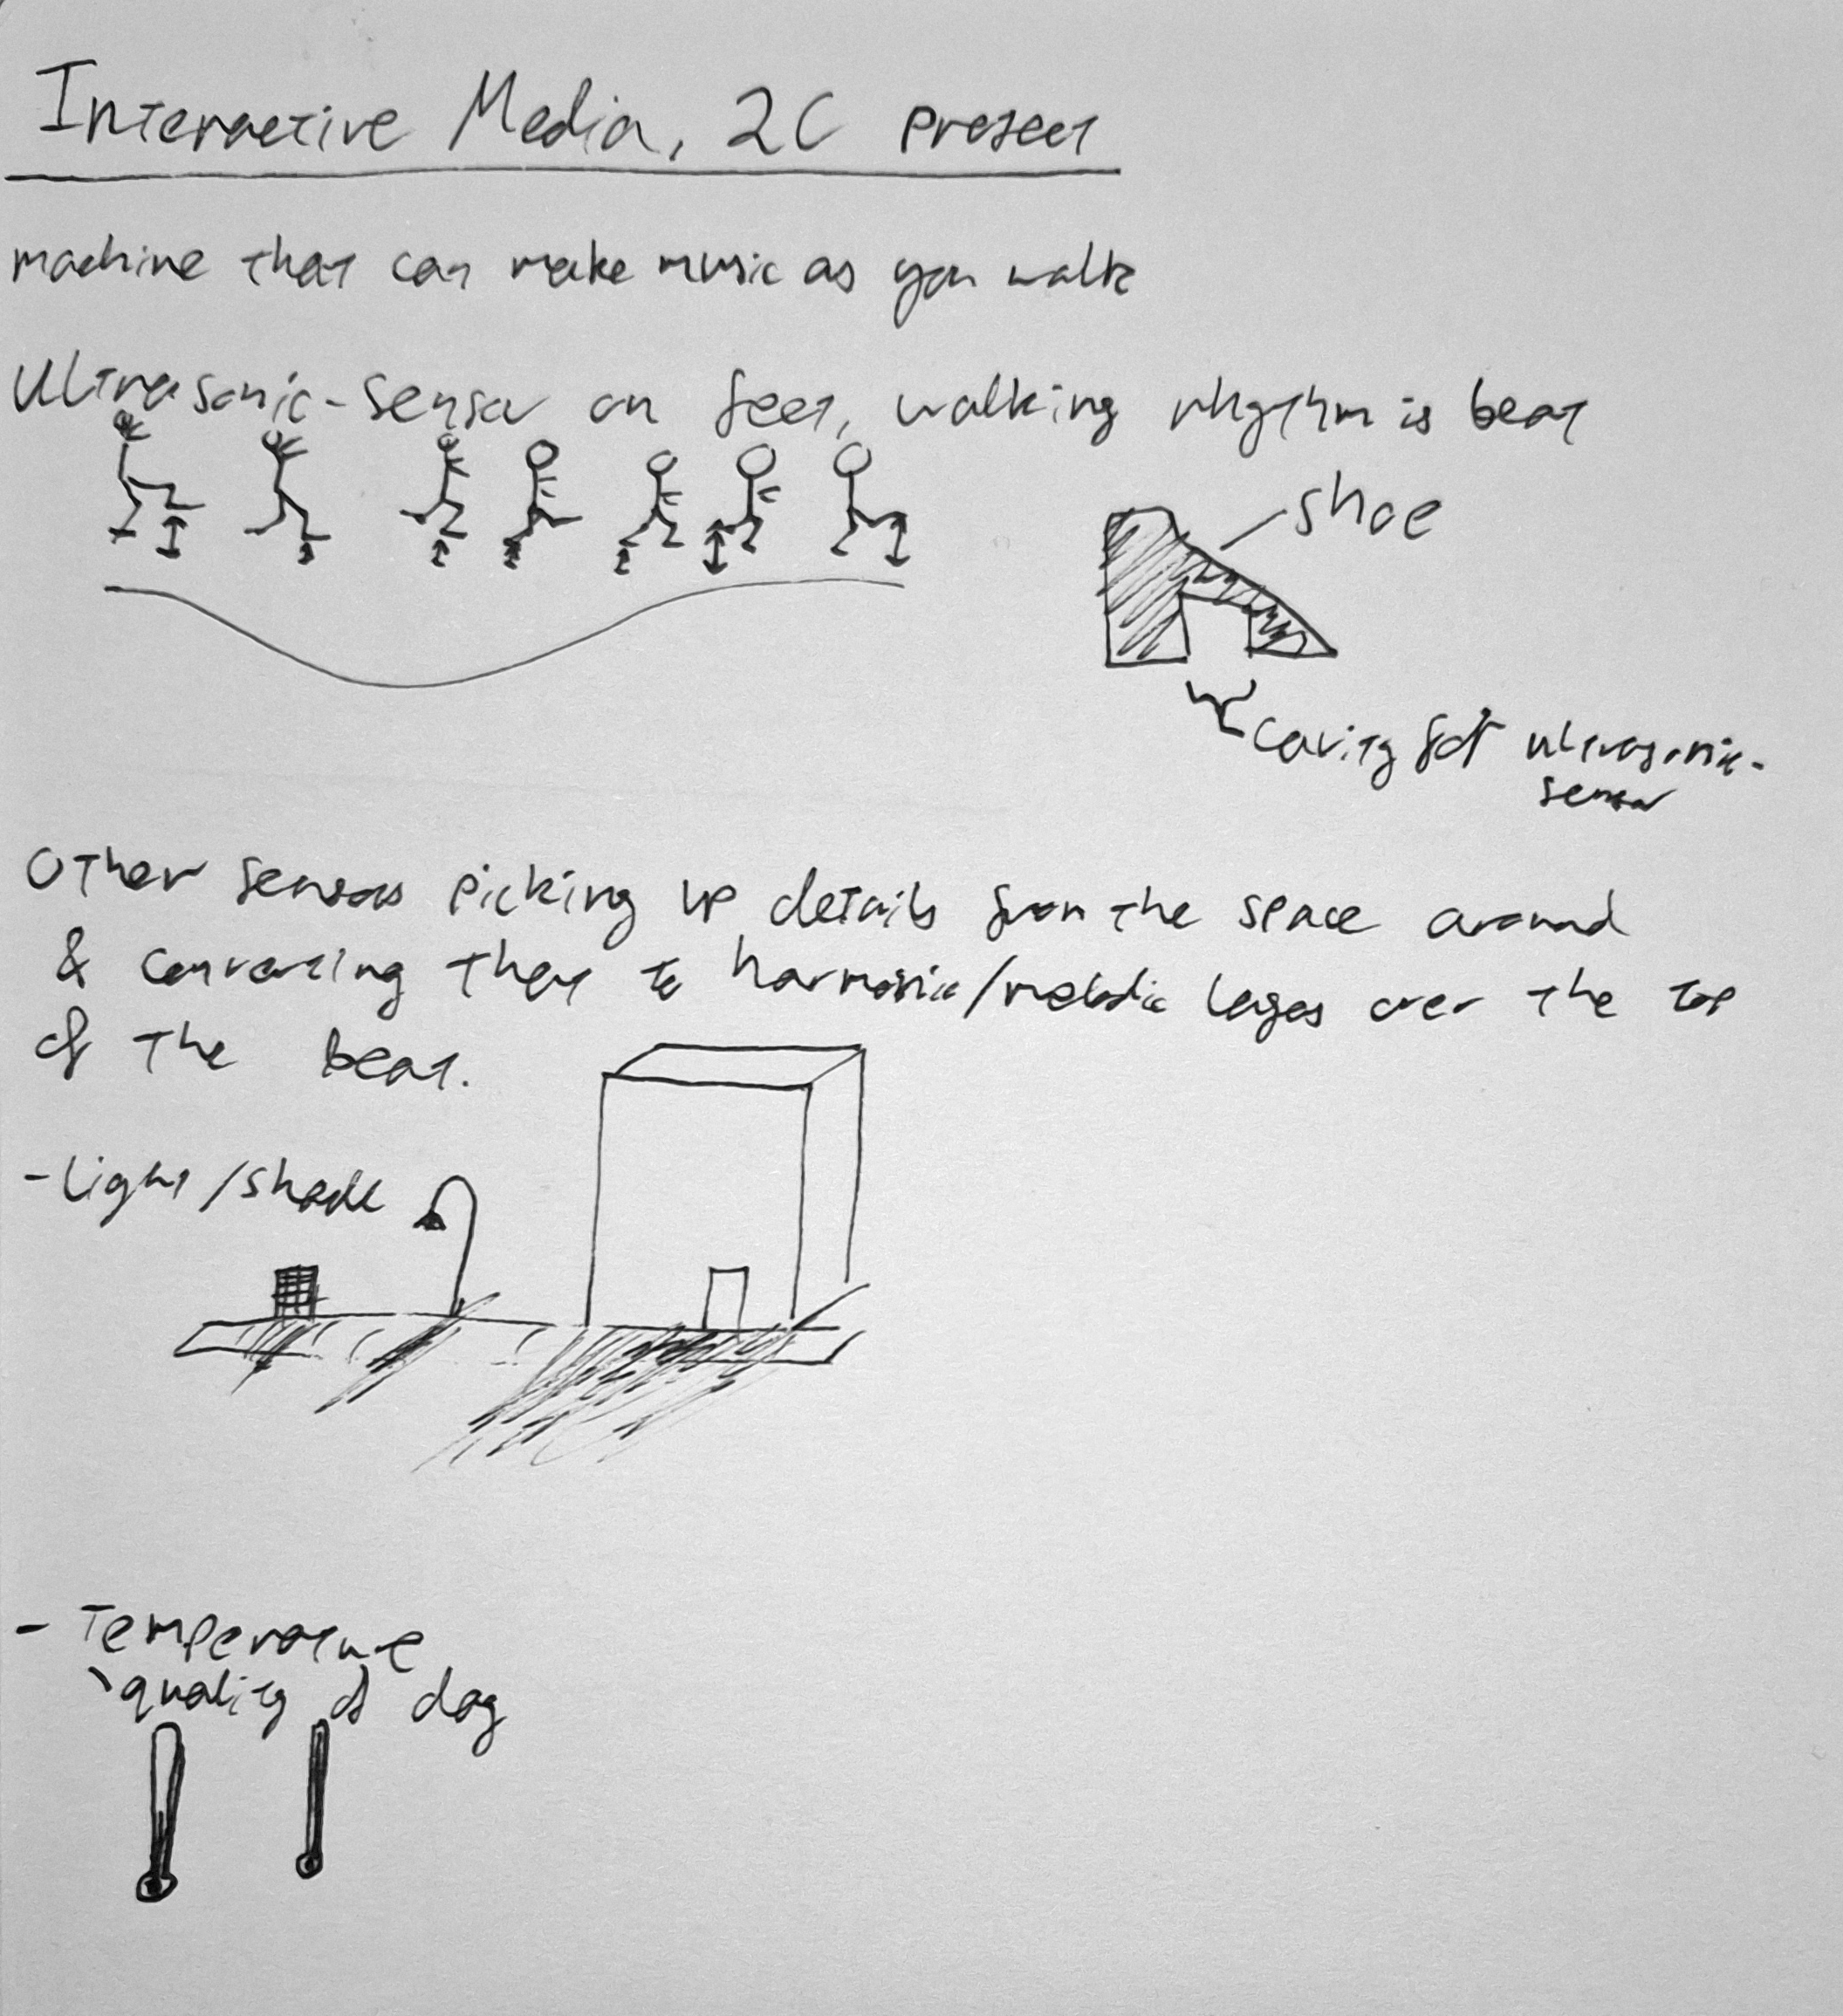 Interactive Media, 2C project
machine that can make music as you walk
Ultrasonic-sensor on feet, walking rhythm is beat
shoe
cavity for ultrasonic-
sensor
Other sensors picking up details from the space around
& converting them to harmonic/melodic layers over the top
of the beat.
- light/shade
- Temperature
quality of day